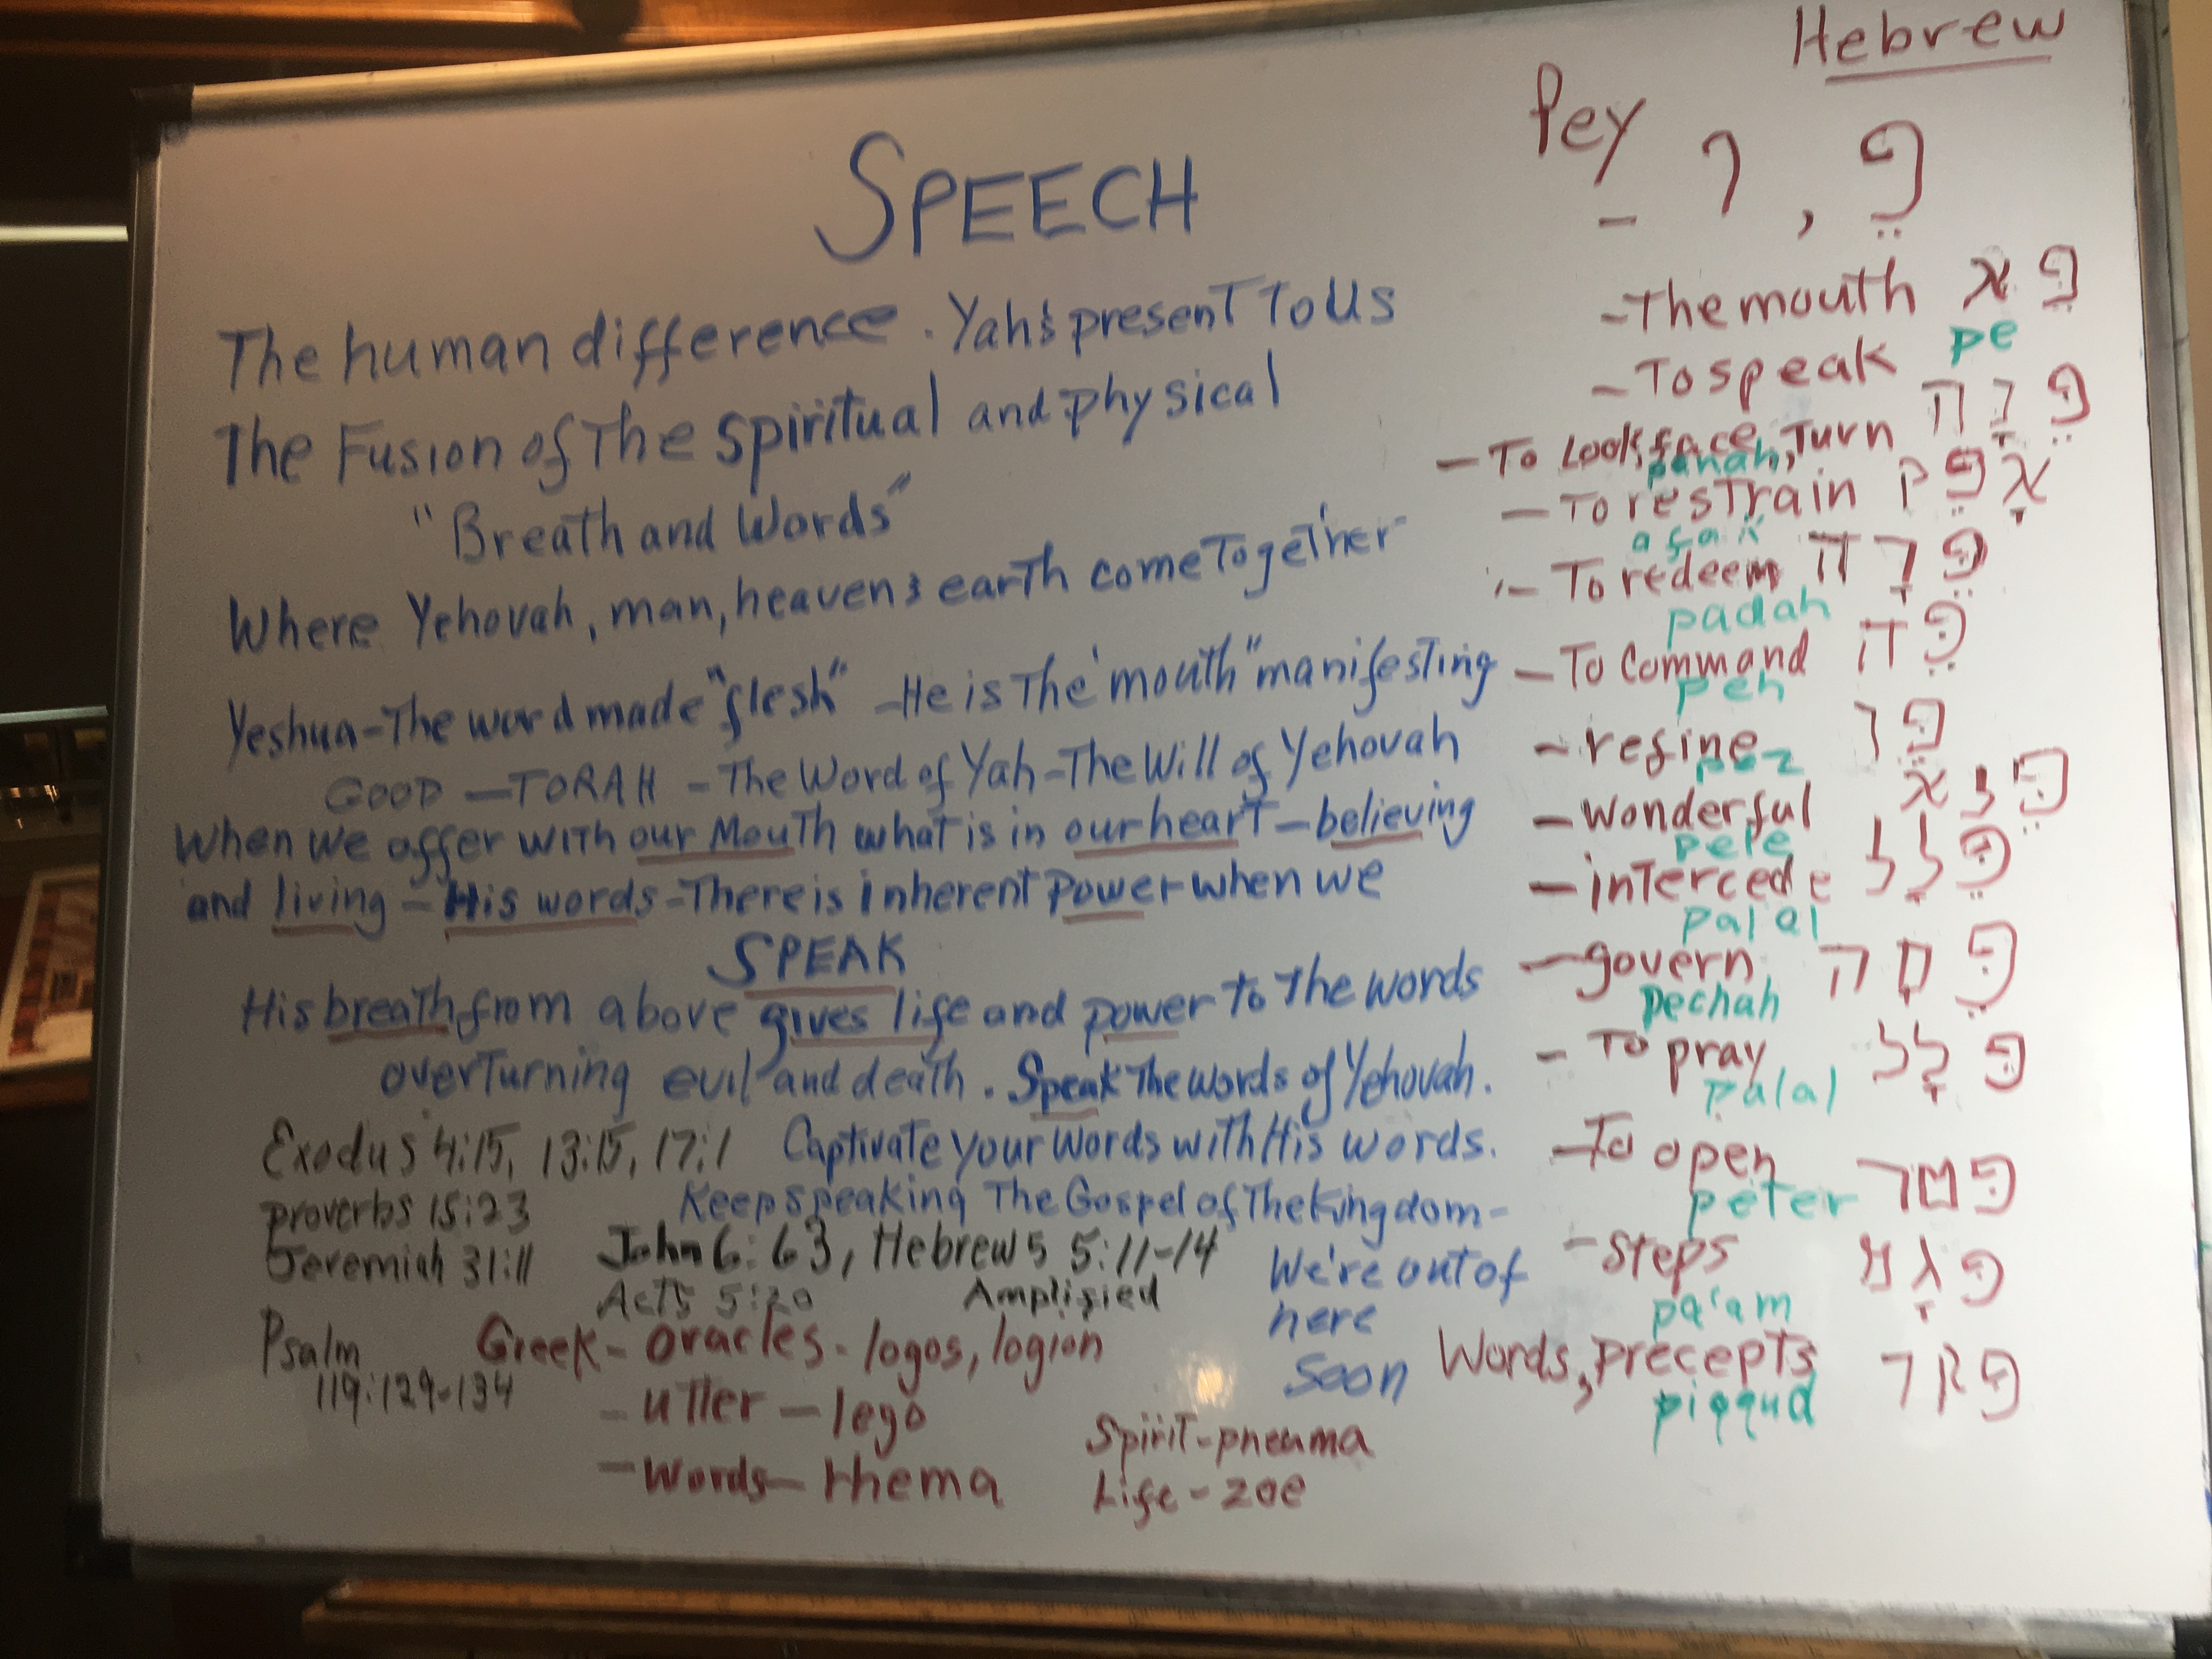 Hebrew
Pey - ך , פֵ
SPEECH
The human difference. Yah's present To Us
The Fusion of The spiritual and physical
"Breath and Words"
Where Yehovah, man, heaven & earth come Together
Yeshua - The word made "flesh" - He is The "mouth" manifesting
GOOD - TORAH - The Word of Yah - The Will of Yehovah
When we offer with our Mouth what is in our heart - believing
and living - His words - There is inherent Power when we
SPEAK
His breath from above gives life and power to the words
overTurning evil and death. Speak The words of Yehovah.
Exodus 4:15, 13:15, 17:1 Captivate your Words with His words.
Proverbs 15:23 Keep speaking The Gospel of The Kingdom -
Jeremiah 31:11 John 6:63, Hebrews 5:11-14 We're out of
Acts 5:20 Amplified here
Psalm Greek - oracles - logos, logion soon
119:129-134 - utter - lego
- words - rhema
Spirit - pneuma
Life - zoe
- The mouth פֵא
pe
- To speak
- To Look, face, Turn
panah
- To resTrain
afak
- To redeem פֵדָה
padah
- To Command פֵה
peh
- refine
pez
- wonderful
pele
- intercede פֵלָל
palal
- govern
pechah
- To pray פלָל
palal
- To open פטר
peter
- Steps
pa'am
Words, precepts פקד
piqqud